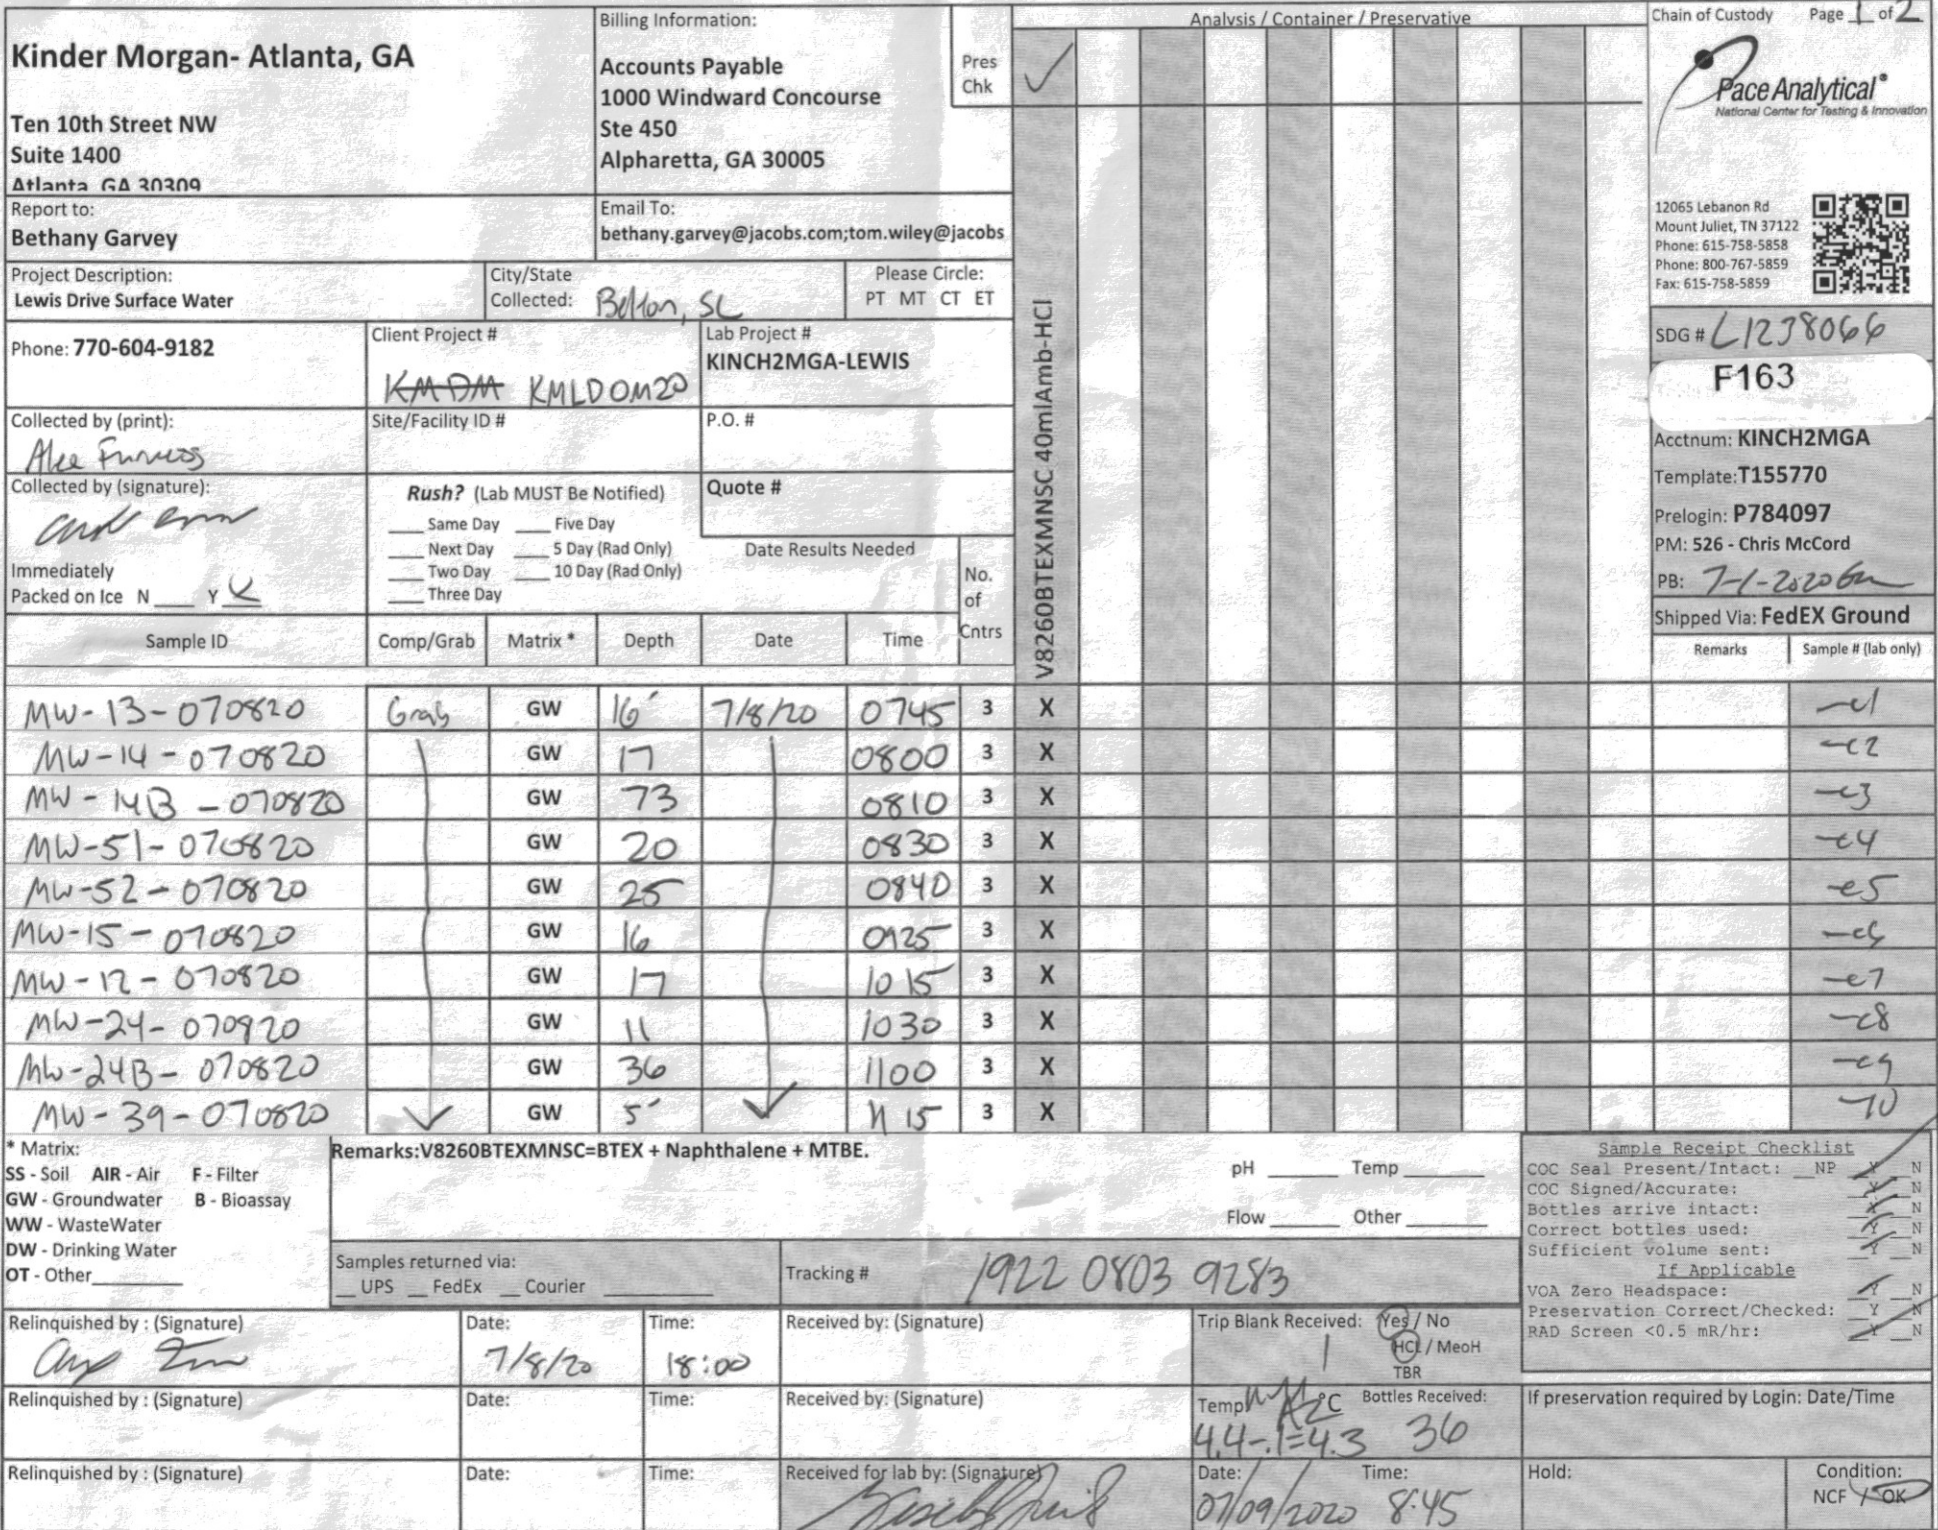 Kinder Morgan- Atlanta, GA
Ten 10th Street NW
Suite 1400
Atlanta, GA 30309
Billing Information:
Accounts Payable
1000 Windward Concourse
Ste 450
Alpharetta, GA 30005
Pres
Chk
Analysis / Container / Preservative
Chain of Custody Page 1 of 2
Pace Analytical®
National Center for Testing & Innovation
12065 Lebanon Rd
Mount Juliet, TN 37122
Phone: 615-758-5858
Phone: 800-767-5859
Fax: 615-758-5859
Report to:
Bethany Garvey
Email To:
bethany.garvey@jacobs.com;tom.wiley@jacobs
Project Description:
Lewis Drive Surface Water
City/State
Collected: Belton, SC
Please Circle:
PT MT CT ET
Phone: 770-604-9182
Client Project #
KMDM KMLDOM20
Lab Project #
KINCH2MGA-LEWIS
Collected by (print):
Site/Facility ID #
P.O. #
Collected by (signature):
Rush? (Lab MUST Be Notified)
___ Same Day ___ Five Day
___ Next Day ___ 5 Day (Rad Only)
___ Two Day ___ 10 Day (Rad Only)
___ Three Day
Quote #
Date Results Needed
Immediately
Packed on Ice N ___ Y ___
No.
of
Cntrs
V8260BTEXMNSC 40mlAmb-HCl
SDG # L1238066
F163
Acctnum: KINCH2MGA
Template: T155770
Prelogin: P784097
PM: 526 - Chris McCord
PB: 7-1-2020
Shipped Via: FedEX Ground
Sample ID Comp/Grab Matrix * Depth Date Time Remarks Sample # (lab only)
MW-13-070820 Grab GW 16' 7/8/20 0745 3 X -01
MW-14-070820 GW 17 0800 3 X -02
MW-14B-070820 GW 73 0810 3 X -03
MW-51-070820 GW 20 0830 3 X -04
MW-52-070820 GW 25 0840 3 X -05
MW-15-070820 GW 16 0925 3 X -06
MW-12-070820 GW 17 1015 3 X -07
MW-24-070920 GW 11 1030 3 X -08
MW-24B-070820 GW 36 1100 3 X -09
MW-39-070820 GW 5' 1115 3 X -10
* Matrix:
SS - Soil AIR - Air F - Filter
GW - Groundwater B - Bioassay
WW - WasteWater
DW - Drinking Water
OT - Other
Remarks:V8260BTEXMNSC=BTEX + Naphthalene + MTBE.
pH ___ Temp ___
Flow ___ Other ___
Samples returned via:
__ UPS __ FedEx __ Courier
Tracking # 1922 0803 9283
Sample Receipt Checklist
COC Seal Present/Intact: __NP Y N
COC Signed/Accurate: Y N
Bottles arrive intact: Y N
Correct bottles used: Y N
Sufficient volume sent: Y N
If Applicable
VOA Zero Headspace: Y N
Preservation Correct/Checked: Y N
RAD Screen <0.5 mR/hr: Y N
Relinquished by : (Signature) Date: 7/8/20 Time: 18:00 Received by: (Signature)
Trip Blank Received: Yes / No
1 HCL / MeoH
TBR
Relinquished by : (Signature) Date: Time: Received by: (Signature)
Temp °C Bottles Received:
4.4-.1=4.3 36
If preservation required by Login: Date/Time
Relinquished by : (Signature) Date: Time: Received for lab by: (Signature)
Date: 07/09/2020 Time: 8:45
Hold:
Condition:
NCF / OK